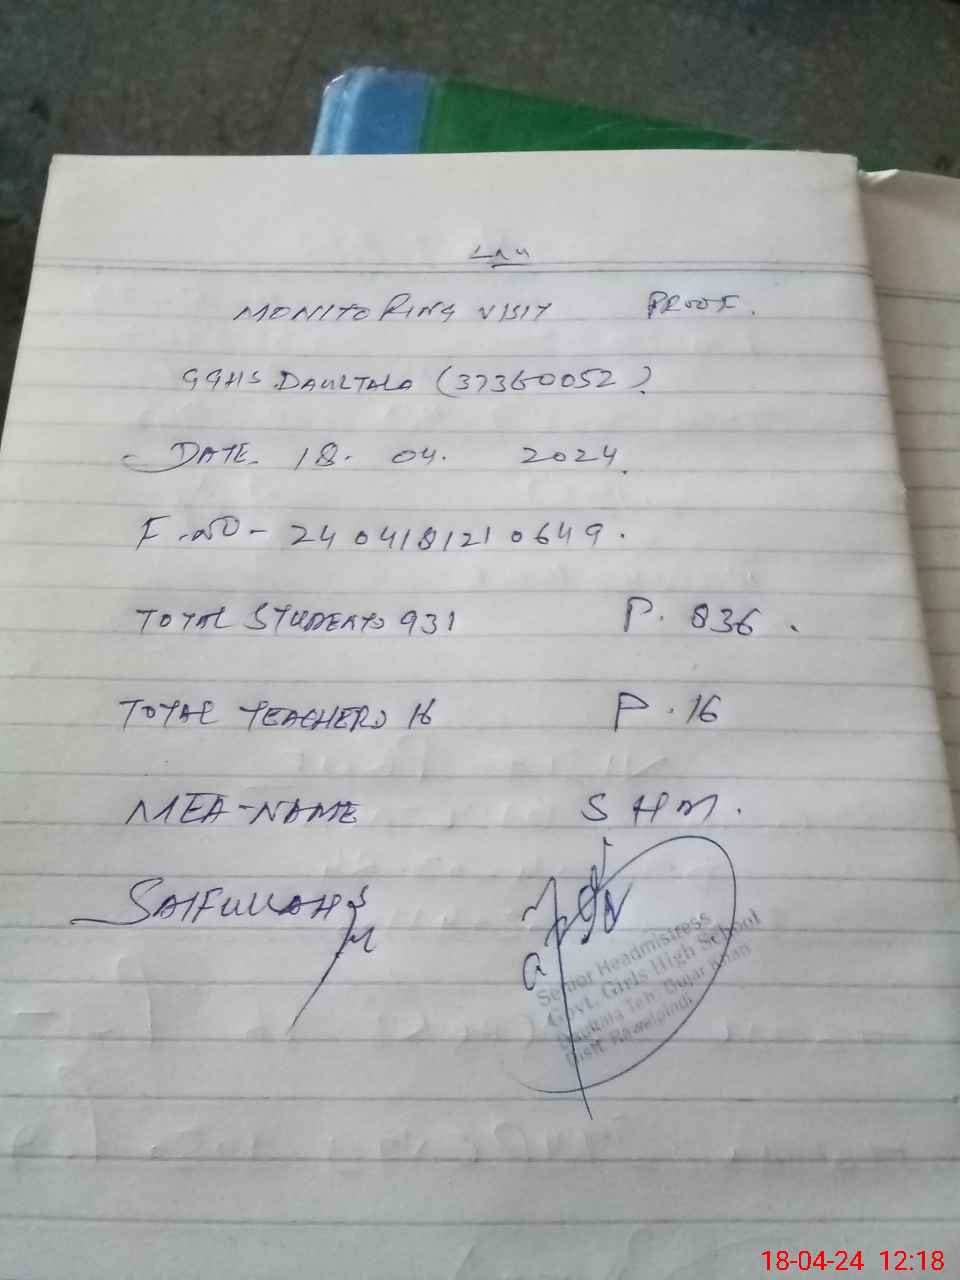 MONITORING VISIT PROOF.
GGHS DAULTALA (37360052)
DATE 18. 04. 2024.
F.NO- 2404181210649.
TOTAL STUDENTS 931 P. 836.
TOTAL TEACHERS 16 P. 16
MEA-NAME SHM.
SAIFULLAH
Senior Headmistress
Govt. Girls High School
Daultala Teh. Gujar Khan
Distt. Rawalpindi
18-04-24 12:18